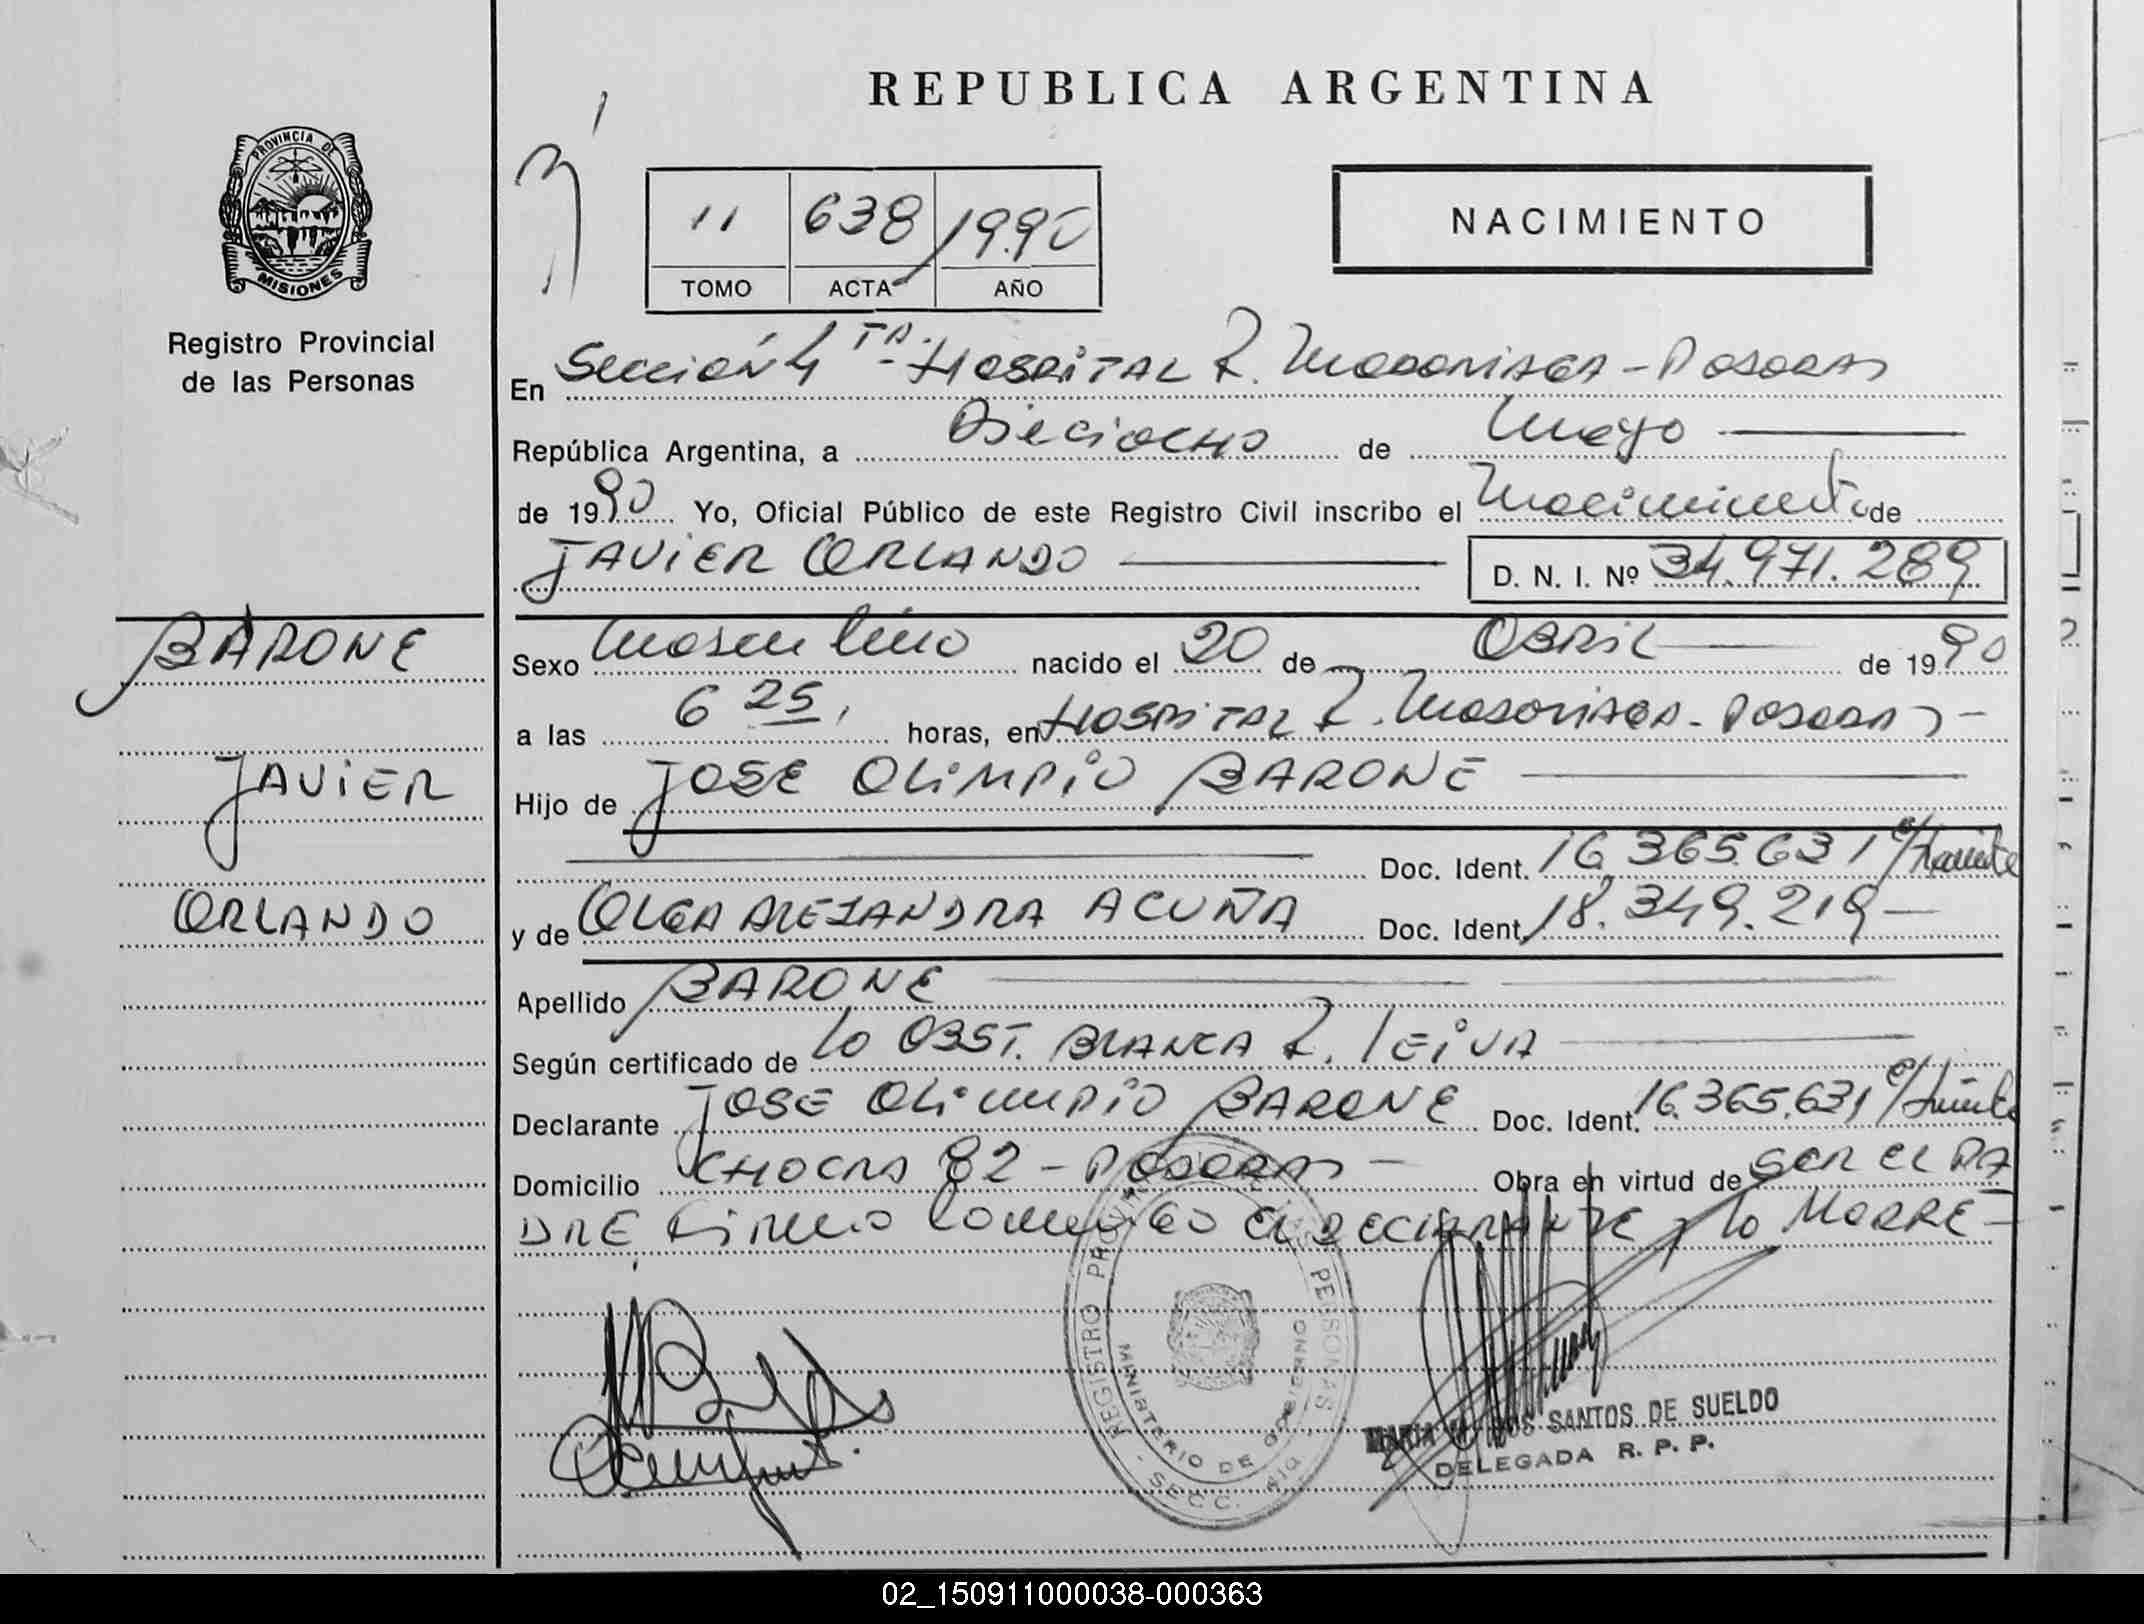 REPUBLICA ARGENTINA
PROVINCIA DE
MISIONES
Registro Provincial
de las Personas
11 638 1990
TOMO ACTA AÑO
NACIMIENTO
En Sección 4 TA. - HOSPITAL R. Madariaga - Posadas
República Argentina, a Dieciocho de Mayo
de 1990 Yo, Oficial Público de este Registro Civil inscribo el Nacimiento de
JAVIER ORLANDO D. N. I. Nº 34.971.289
BARONE
JAVIER
ORLANDO
Sexo Masculino nacido el 20 de Abril de 1990
a las 6 25, horas, en HOSPITAL R. Madariaga - Posadas -
Hijo de JOSE OLIMPIO BARONE
Doc. Ident. 16.365.631 c/tramite
y de OLGA ALEJANDRA ACUÑA Doc. Ident. 18.349.219 -
Apellido BARONE
Según certificado de la OBST. BLANCA R. LEIVA
Declarante JOSE OLIMPIO BARONE Doc. Ident. 16.365.631 c/trámite
Domicilio CHACRA 82 - Posadas - Obra en virtud de SER EL PA
DRE Firma conmigo EL DECLARANTE y la MADRE -
REGISTRO PROVINCIAL DE LAS PERSONAS
MINISTERIO DE GOBIERNO
SECC.
MARIA DOS SANTOS DE SUELDO
DELEGADA R. P. P.
02_150911000038-000363